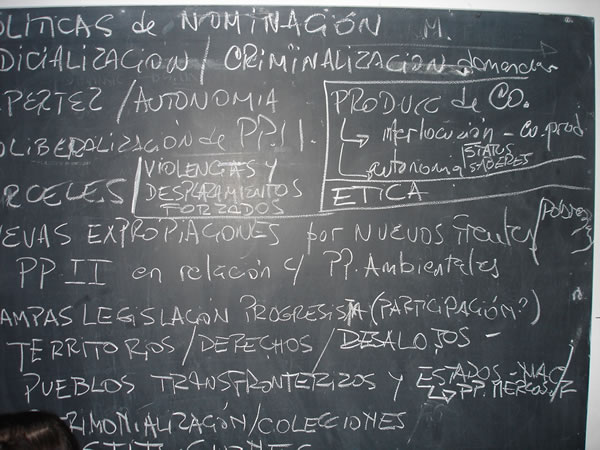 OLITICAS de NOMINACIÓN M.
DICIALIZACION / CRIMINALIZACION demandas
PERTEZ / AUTONOMIA
PRODUCC de CO.
interlocución - co.prod
autonomia STATUS SABERES
OLIBERALIZACIÓN de PP.II.
VIOLENCIAS Y
DESPLAZAMIENTOS
FORZADOS
ETICA
RCELES
EVAS EXPROPIACIONES por NUEVOS frentes
PP II en relación c/ PP. Ambientales
AMPAS LEGISLACIÓN PROGRESISTA (PARTICIPACIÓN?)
TERRITORIOS / DERECHOS / DESALOJOS -
PUEBLOS TRANSFRONTERIZOS Y ESTADOS-NAC
PP. MERCOS
RIMONIALIZACIÓN / COLECCIONES